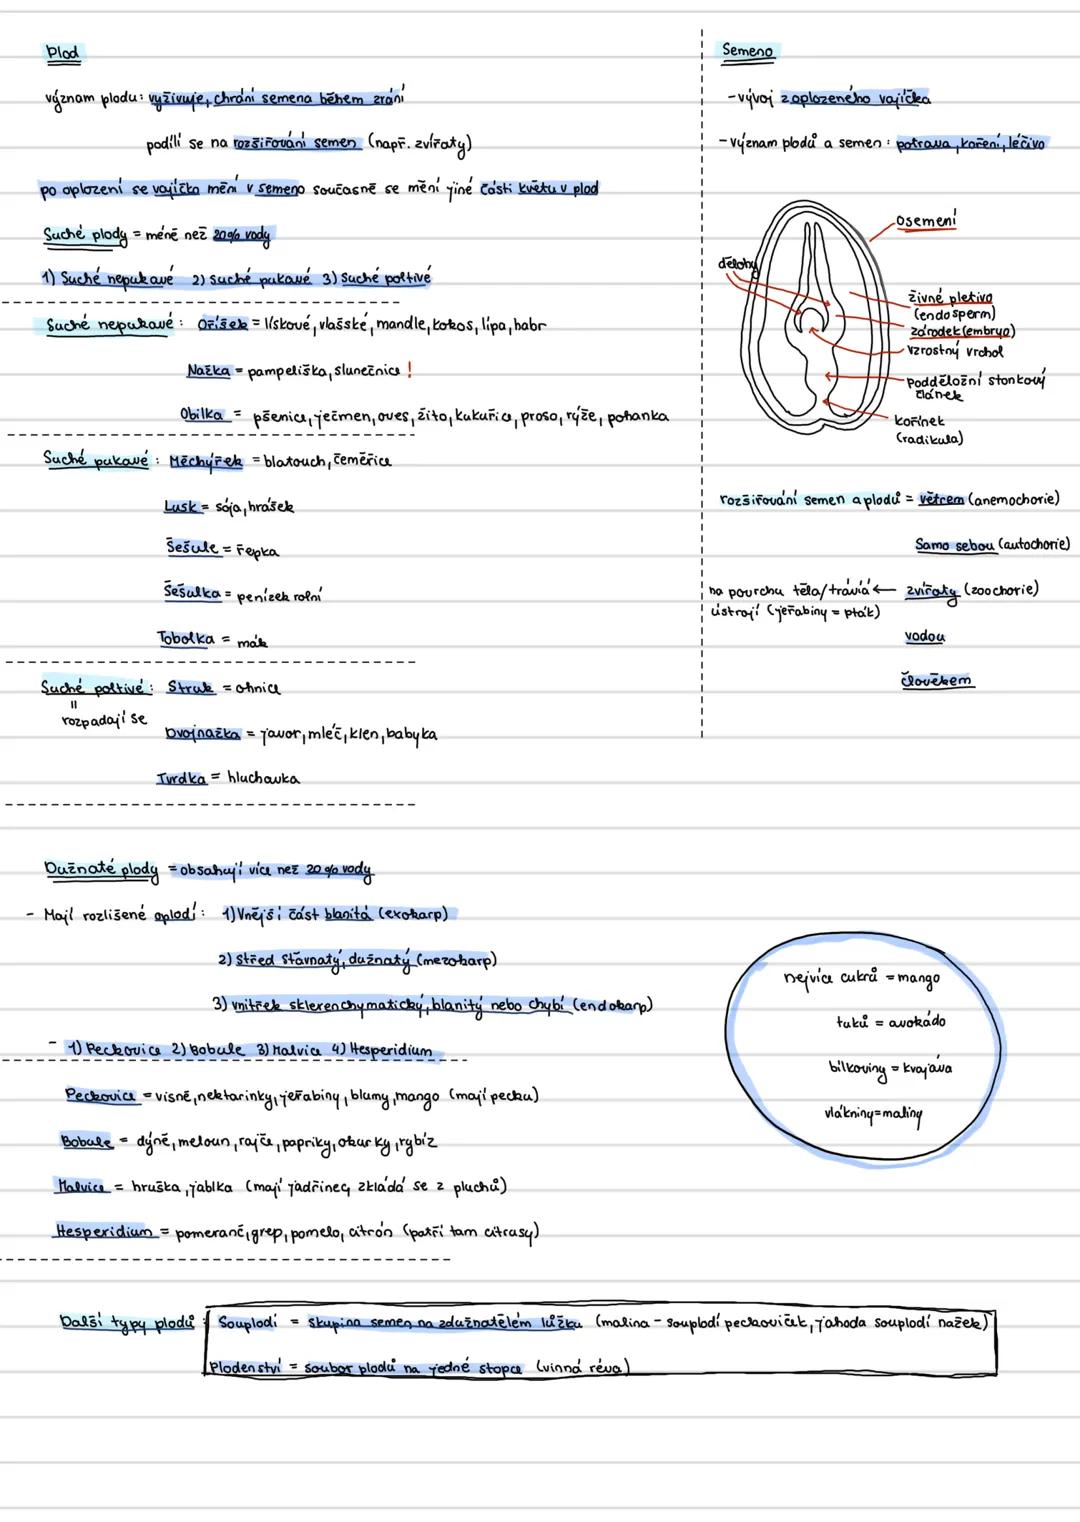 Plod
význam plodu: vyživuje, chrání semena během zrání
podílí se na rozšiřování semen (např. zvířaty)
po oplození se vajíčko mění v semeno současně se mění jiné části květu v plod
Suché plody = méně než 20% vody
1) Suché nepukavé 2) Suché pukavé 3) Suché poltivé
Suché nepukavé: Oříšek = lískové, vlašské, mandle, kokos, lípa, habr
Nažka = pampeliška, slunečnice !
Obilka = pšenice, ječmen, oves, žito, kukuřice, proso, rýže, pohanka
Suché pukavé: Měchýřek = blatouch, čemeřice
Lusk = sója, hrášek
Šešule = řepka
Šešulka = penízek rolní
Tobolka = mák
Suché poltivé: Struk = ohnice
=
rozpadají se
Dvojnažka = javor, mléč, klen, babyka
Tvrdka = hluchavka
Semeno
- vývoj z oplozeného vajíčka
- význam plodů a semen: potrava, koření, léčivo
osemení
dělohy
živné pletivo
(endosperm)
zárodek (embryo)
vzrostný vrchol
podděložní stonkový
článek
kořínek
(radikula)
rozšiřování semen a plodů = větrem (anemochorie)
Samo sebou (autochorie)
na povrchu těla/trávíá ← zvířaty (zoochorie)
ústrojí (jeřabiny = pták)
vodou
člověkem
Dužnaté plody = obsahují více než 20% vody
- Mají rozlišené oplodí: 1) Vnější část blanitá (exokarp)
2) střed šťavnatý, dužnatý (mezokarp)
3) vnitřek sklerenchymatický, blanitý nebo chybí (endokarp)
- 1) Peckovice 2) Bobule 3) Malvice 4) Hesperidium
Peckovice = višně, nektarinky, jeřabiny, blumy, mango (mají pecku)
Bobule = dýně, meloun, rajče, papriky, okurky, rybíz
Malvice = hruška, jablka (mají jádřinec, zkládá se z pluchů)
Hesperidium = pomeranč, grep, pomelo, citrón (patří tam citrusy)
nejvíce cukrů = mango
tuků = avokádo
bílkoviny = kvajáva
vlákniny = maliny
Další typy plodů: Souplodí = skupina semen na zdužnatělém lůžku (malina - souplodí peckoviček, jahoda souplodí nažek)
Plodenství = soubor plodů na jedné stopce (vinná réva)